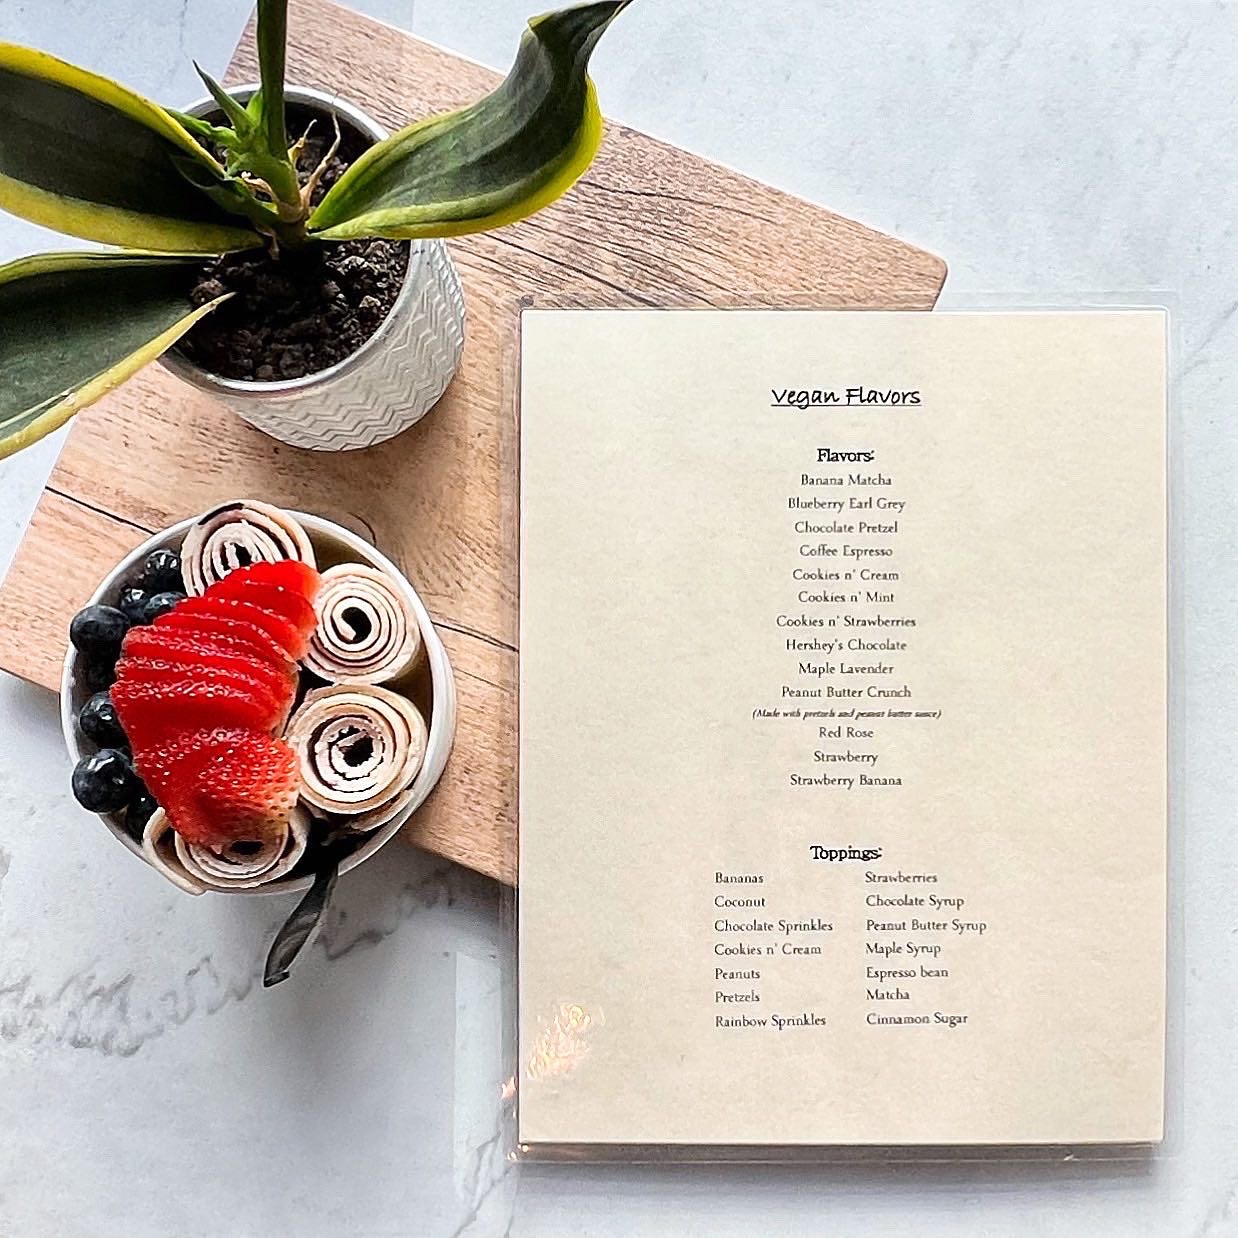 Vegan Flavors
Flavors:
Banana Matcha
Blueberry Earl Grey
Chocolate Pretzel
Coffee Espresso
Cookies n' Cream
Cookies n' Mint
Cookies n' Strawberries
Hershey's Chocolate
Maple Lavender
Peanut Butter Crunch
(Made with pretzels and peanut butter sauce)
Red Rose
Strawberry
Strawberry Banana
Toppings:
Bananas
Coconut
Chocolate Sprinkles
Cookies n' Cream
Peanuts
Pretzels
Rainbow Sprinkles
Strawberries
Chocolate Syrup
Peanut Butter Syrup
Maple Syrup
Espresso bean
Matcha
Cinnamon Sugar